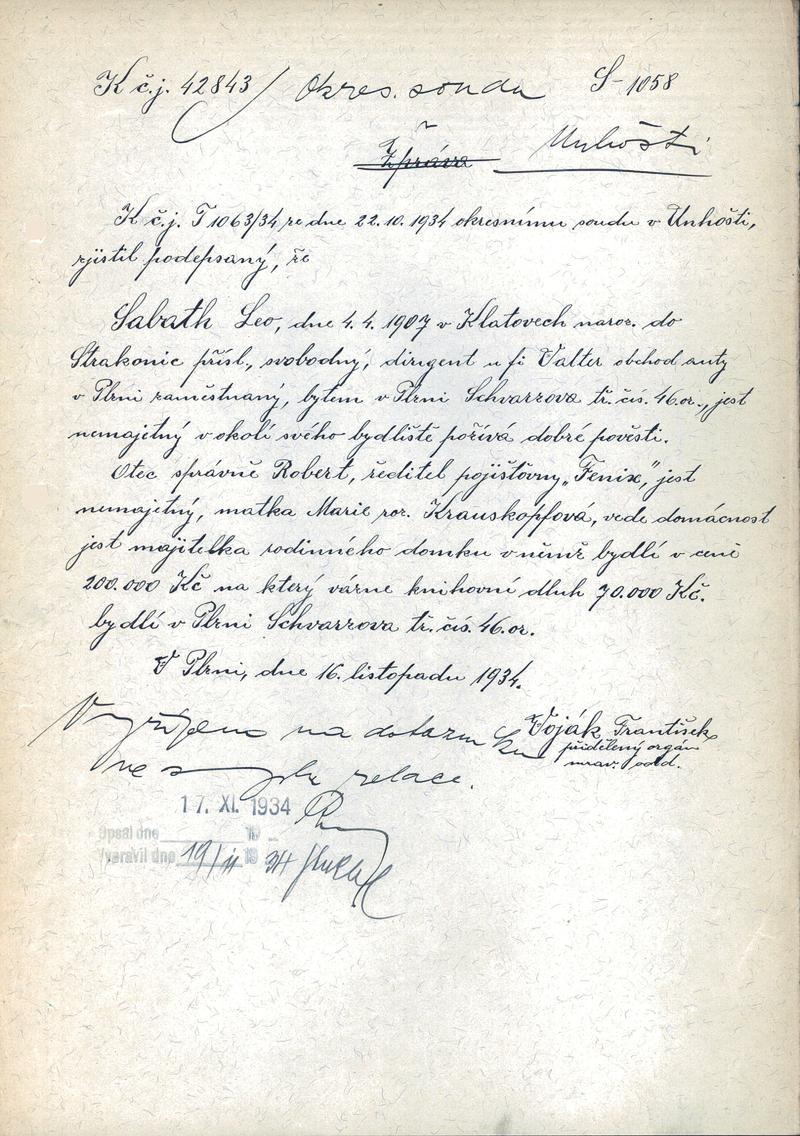 K č.j. 42843 / Okres. soudu S-1058
v
Zpráva Unhošti
K č.j. T 1063/34 ze dne 22.10.1934 okresnímu soudu v Unhošti,
zjistil podepsaný, že
Sabath Leo, dne 4.4.1907 v Klatovech naroz. do
Strakonic přísl., svobodný, dirigent u fi Valter obchod auty
v Plzni zaměstnaný, bytem v Plzni Schvarzova tř. čís. 46.oz., jest
nemajetný v okolí svého bydliště požívá dobré pověsti.
Otec správně Robert, ředitel pojišťovny „Fenix," jest
nemajetný, matka Marie roz. Krauskopfová, vede domácnost
jest majitelka rodinného domku v němž bydlí v ceně
200.000 Kč na který vázne knihovní dluh 70.000 Kč.
bydlí v Plzni Schvarzova tř. čís. 46.oz.
V Plzni, dne 16. listopadu 1934.
Vyřízeno na dotazu
Voják František
přidělený orgán
mrav. odd.
relace.
17. XI. 1934
Opsal dne 19
Vypravil dne 19/11 19 34